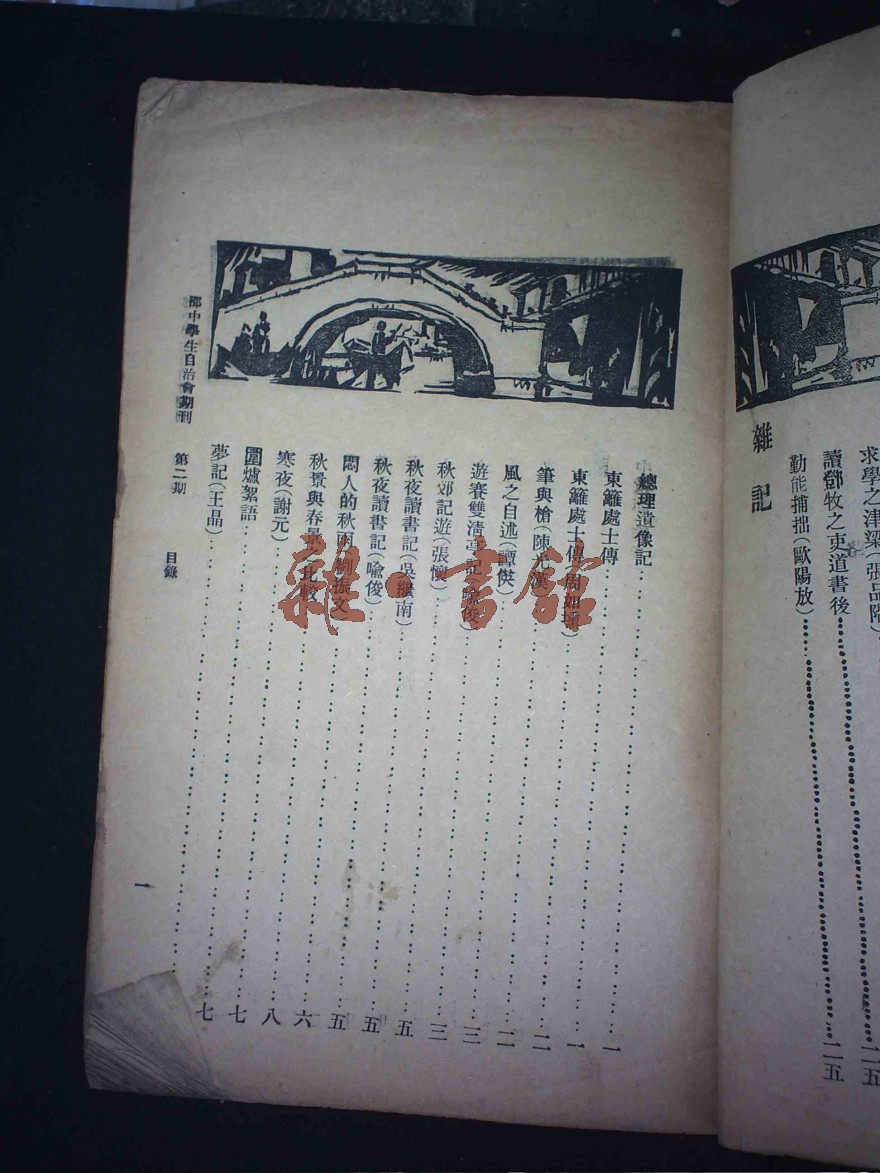 求學之津梁(張品階)……二五
讀鄧牧之吏道書後……二五
勤能補拙(歐陽放)
雜記
總理遺像記
東籬處士傳……一
東籬處士傳(周……)……一
筆與槍(陳光漢)……二
風之自述(譚僙)……二
遊賽雙清亭記(喻俊)……三
秋郊記遊(張懷)……三
秋夜讀書記(吳繼南)……五
秋夜讀書記(喻俊)……五
悶人的秋雨(劉振文)……五
秋景與春景之比較……六
寒夜(謝元)……八
圍爐絮語……七
夢記(王晶)……七
邵中學生自治會期刊 第二期 目錄
一
雜·書館